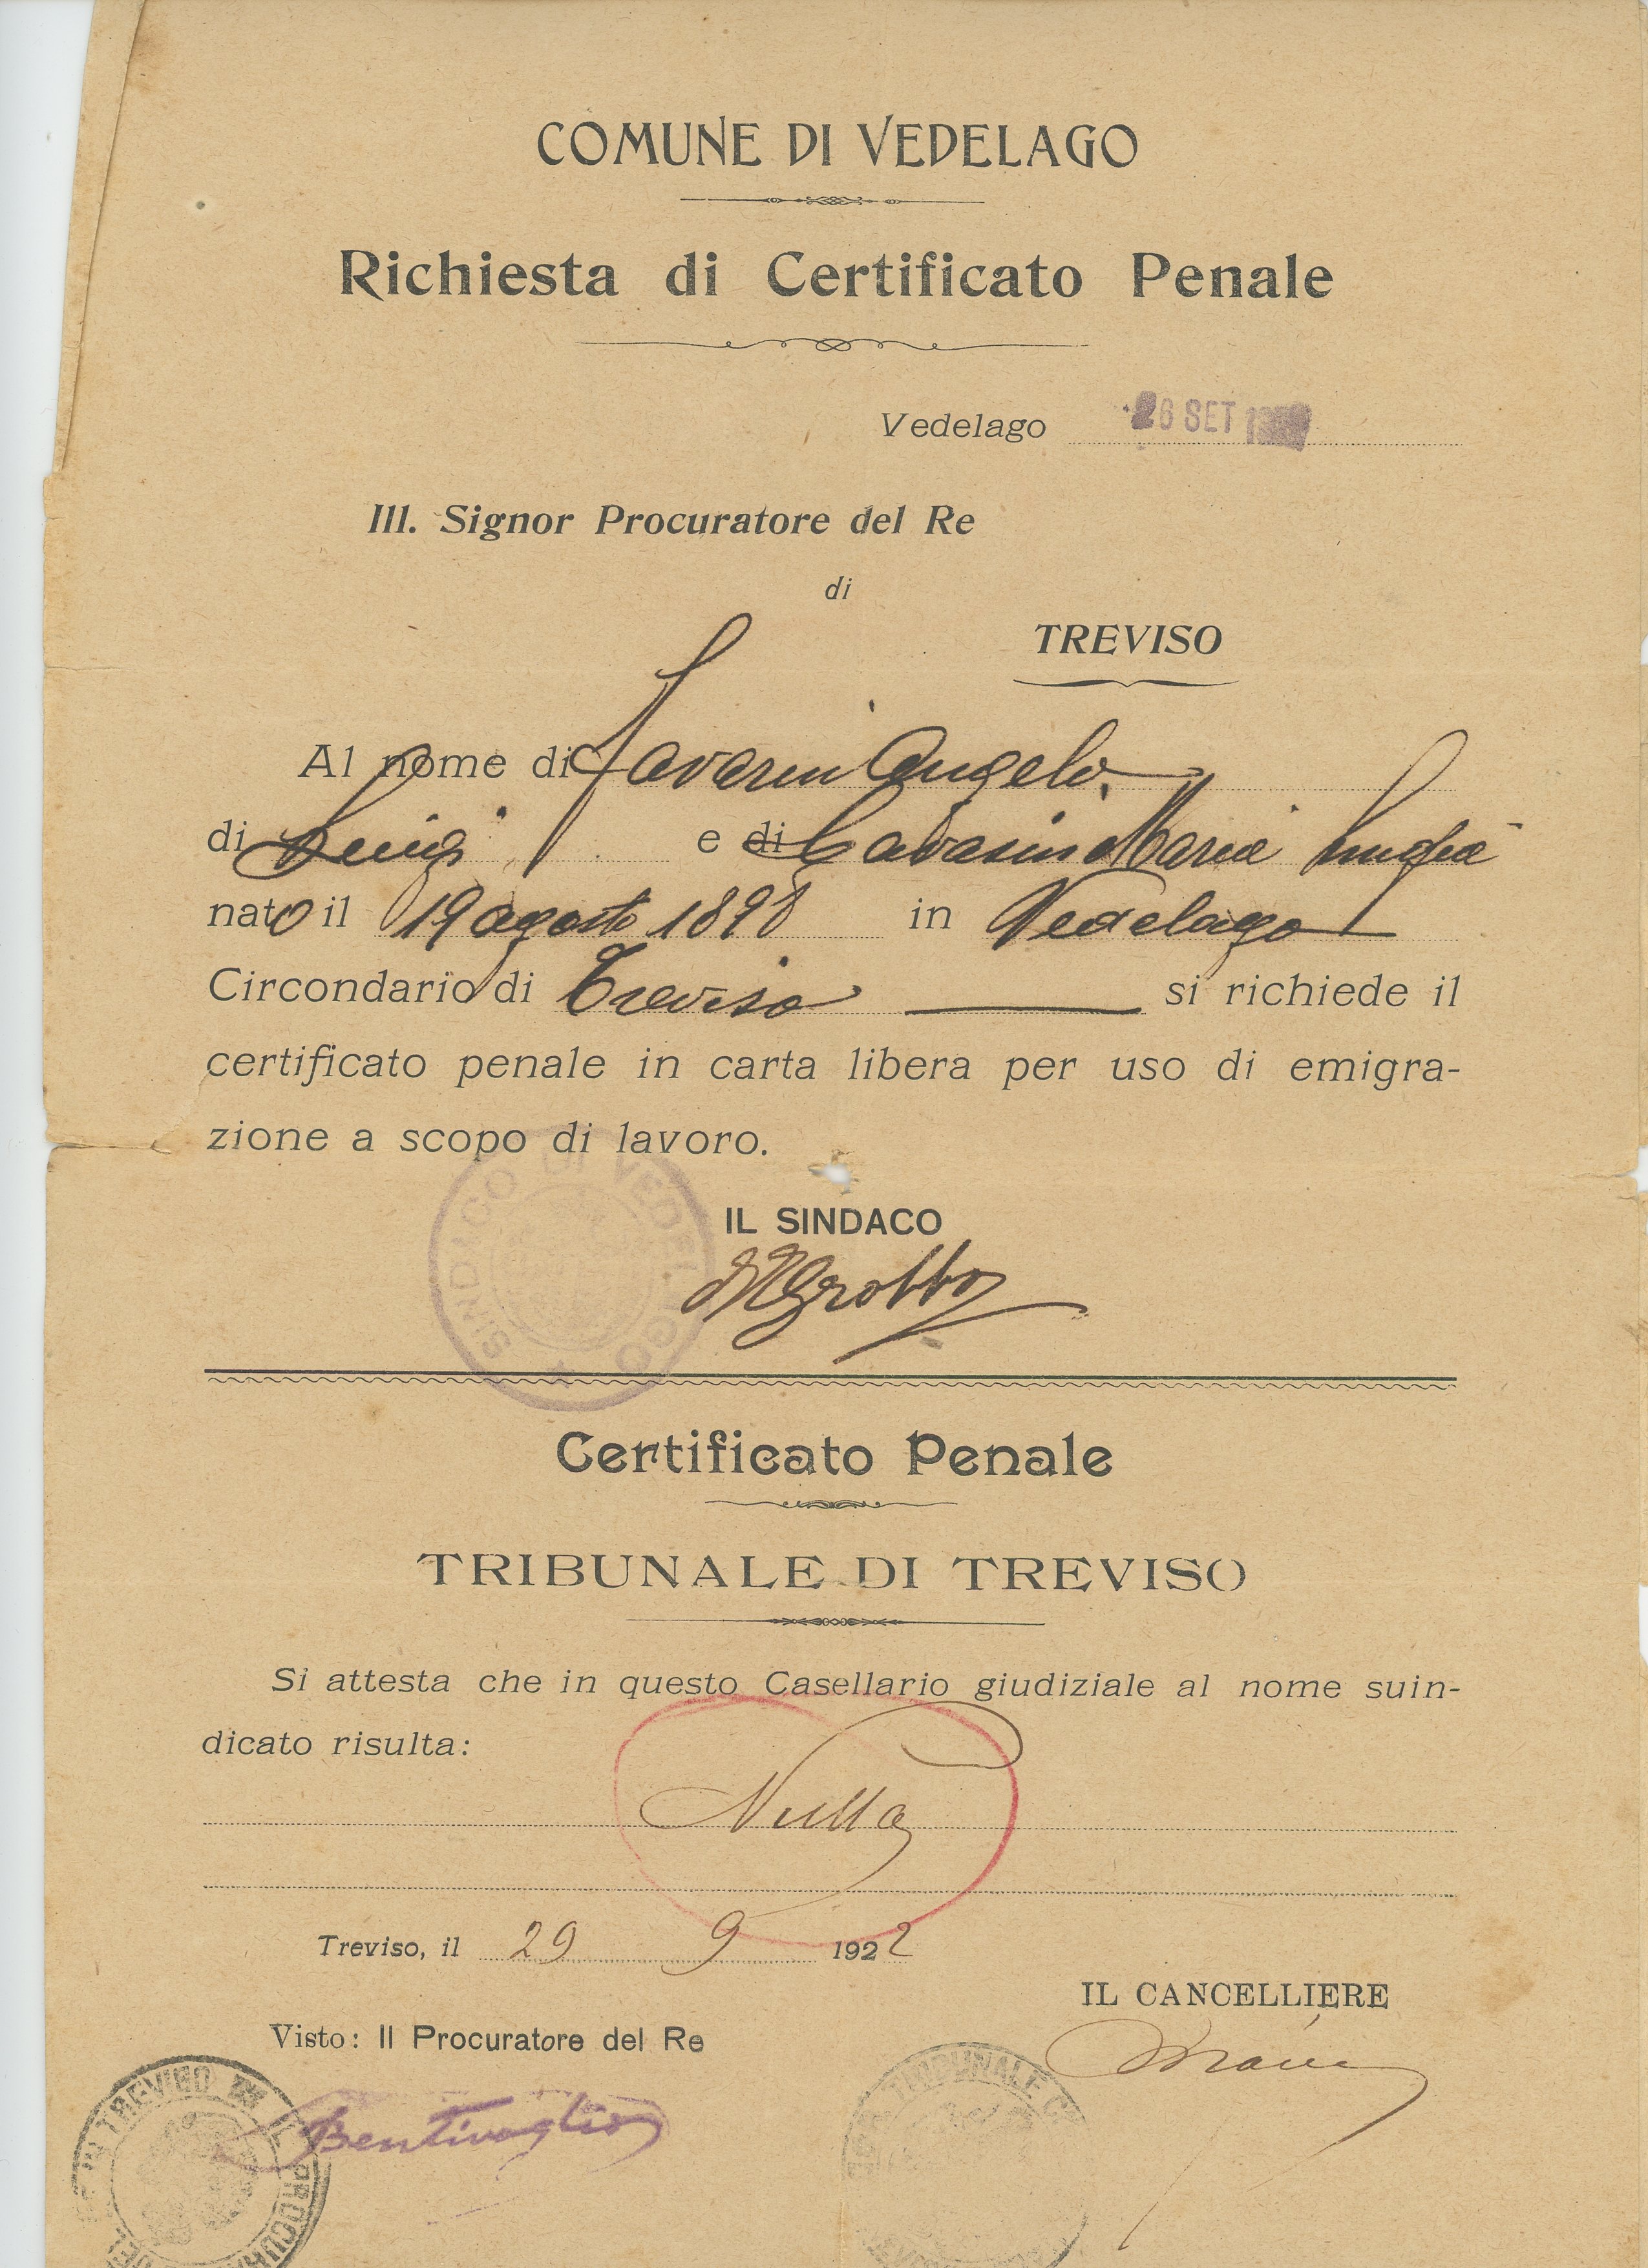 COMUNE DI VEDELAGO
Richiesta di Certificato Penale
Vedelago 26 SET
Ill. Signor Procuratore del Re
di
TREVISO
Al nome di Favarin Angelo
di Luigi e di Cavasin Maria
nato il 19 agosto 1898 in Vedelago
Circondario di Treviso si richiede il
certificato penale in carta libera per uso di emigra-
zione a scopo di lavoro.
SINDACO DI VEDELAGO
IL SINDACO
Certificato Penale
TRIBUNALE DI TREVISO
Si attesta che in questo Casellario giudiziale al nome suin-
dicato risulta:
Nulla
Treviso, il 29 9 1922
IL CANCELLIERE
Visto: Il Procuratore del Re
TRIBUNALE
Bentivoglio